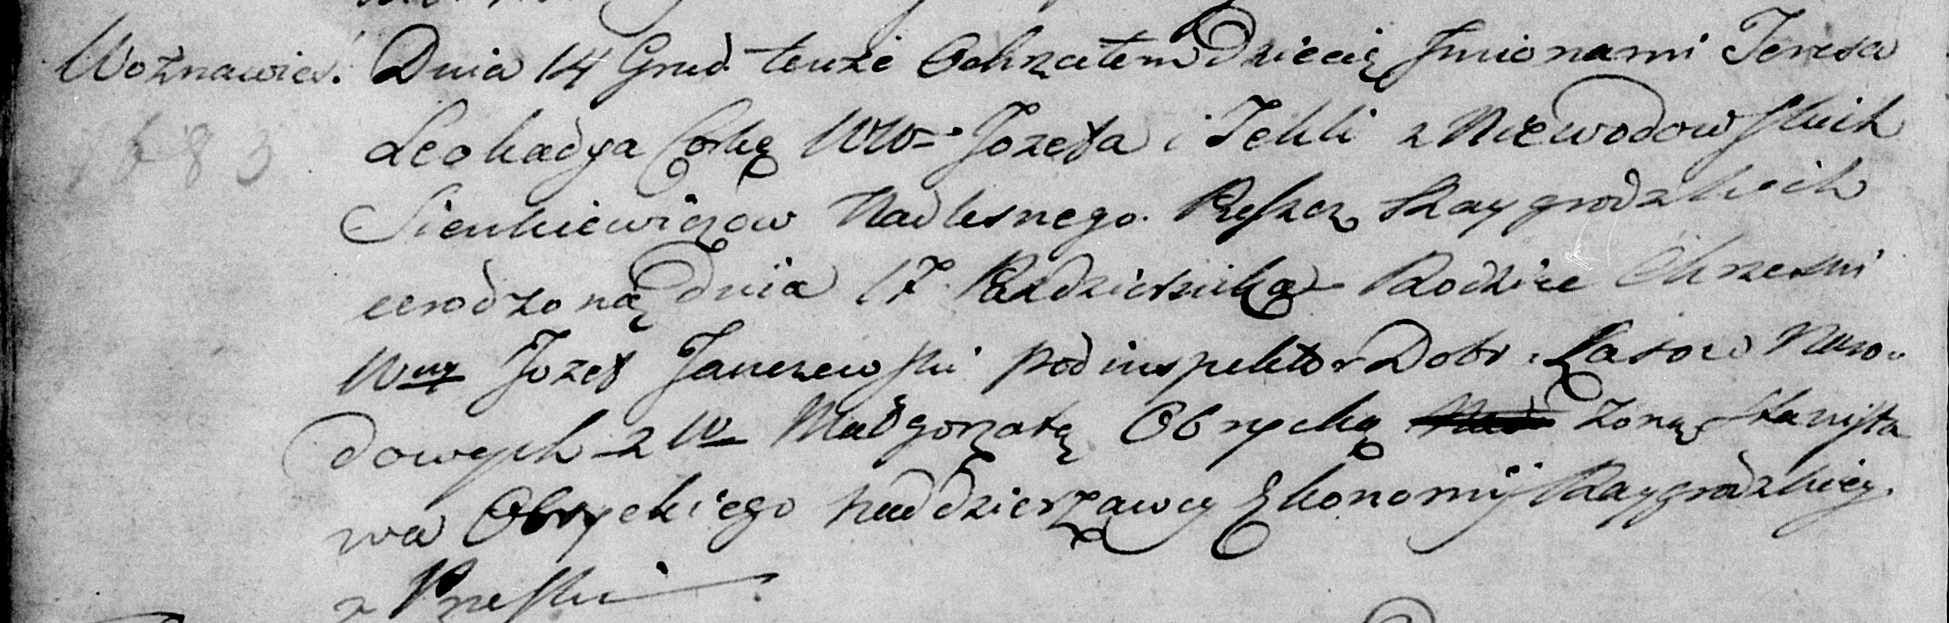 Woznawies. Dnia 14 Grud. tenże Ochrzciłem Dziecię Jmionami Teresa
1683
Leokadya Corkę WW= Jozefa i Tekli z Niewodowskich
Sienkiewiczow Nadlesnego Raygrodzkich
urodzoną dnia 17 Pazdziernika Rodzice Chrzesni
Wny Jozef Janczewski podinspektor Dobr. Lasow Naro-
dowych z W Małgorzatą Obrycką żoną Stanisła
wa Obryckiego naddzierzawcy Ekonomij Raygrodzkiey
z